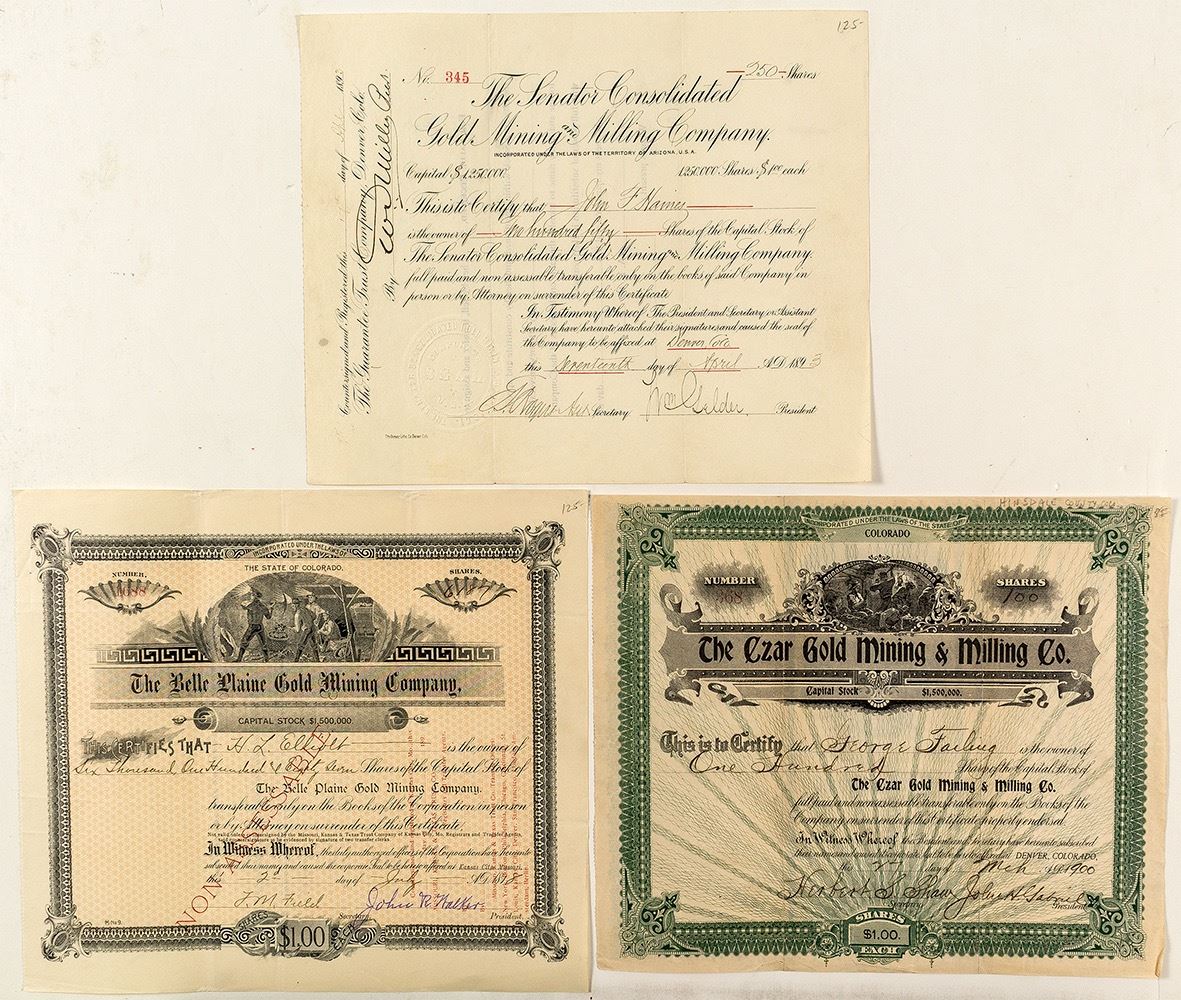 125-
No. 345
—250— Shares
The Senator Consolidated
Gold Mining and Milling Company.
INCORPORATED UNDER THE LAWS OF THE TERRITORY OF ARIZONA, U.S.A.
Capital $1,250,000
1,250,000 Shares $1.00 each
This is to Certify that John F Haines
is the owner of Two hundred fifty Shares of the Capital Stock of
The Senator Consolidated Gold Mining and Milling Company.
full paid and non assessable transferable only on the books of said Company in
person or by Attorney on surrender of this Certificate
In Testimony Whereof The President and Secretary or Assistant
Secretary have hereunto attached their signatures and caused the seal of
the Company to be affixed at Denver Colo
this Seventeenth day of April A.D. 1893
Secretary Wm Gelder President
Countersigned and Registered this day of 189
The Guarantee Trust Company, Denver Colo.
By Pres.
The Denver Litho Co Denver Colo
125-
INCORPORATED UNDER THE LAWS OF
THE STATE OF COLORADO.
NUMBER.
SHARES.
The Belle Plaine Gold Mining Company.
CAPITAL STOCK $1,500,000.
THIS CERTIFIES THAT H. L. Elliott is the owner of
Six Thousand One Hundred & Shares of the Capital Stock of
The Belle Plaine Gold Mining Company.
transferable only on the Books of the Corporation in person
or by Attorney on surrender of this Certificate.
Not valid unless countersigned by the Missouri, Kansas & Texas Trust Company of Kansas City, Mo. Registrars and Transfer Agents,
In Witness Whereof, the duly authorized officers of the Corporation have hereunto
this 2 day of July A.D. 189
NON ASSESSABLE
F. M. Field Secretary. John R. Walker President.
SHARES
$1.00
EACH
HINSDALE COUNTY COLO
85
INCORPORATED UNDER THE LAWS OF THE STATE OF
COLORADO
NUMBER
368
SHARES
100
The Czar Gold Mining & Milling Co.
Capital Stock $1,500,000.
This is to Certify that George Failing is the owner of
One Hundred Shares of the Capital Stock of
The Czar Gold Mining & Milling Co.
full paid and non assessable transferable only on the Books of the
Company on surrender of this Certificate properly endorsed.
In Witness Whereof the President and Secretary have hereunto subscribed
their names and caused the corporate seal to be hereto affixed at DENVER, COLORADO,
this 2 day of Mch A.D. 1900
Herbert S. Shaw Secretary President
SHARES
$1.00.
EACH